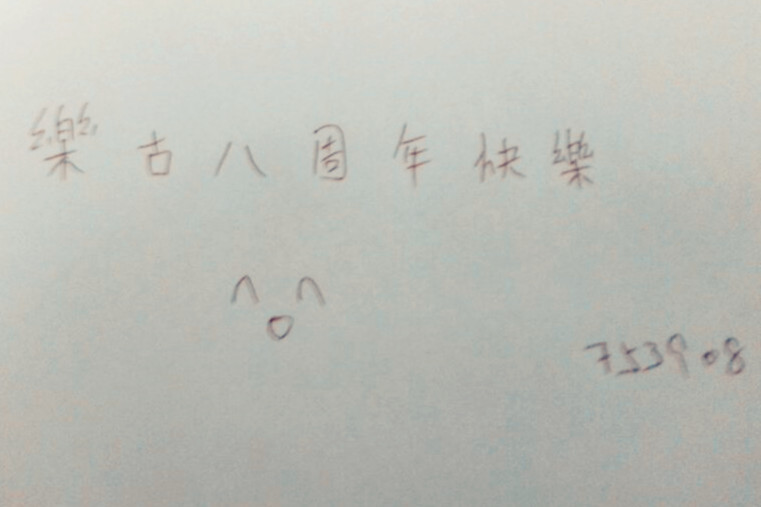 樂古八周年快樂
^o^
753908